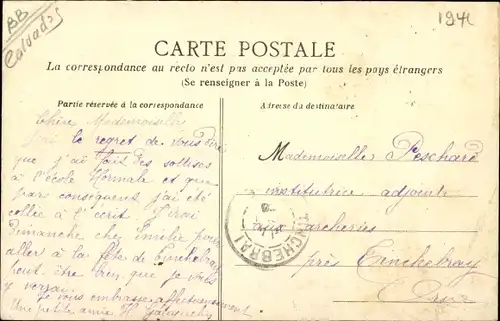 BB
Calvados
194
CARTE POSTALE
La correspondance au recto n'est pas acceptée par tous les pays étrangers
(Se renseigner à la Poste)
Partie réservée à la correspondance
Chère Mademoiselle
J'ai le regret de vous dire
que j'ai fait des sottises
à l'école Normale et que
par conséquent j'ai été
collée à l'écrit J'irai
Dimanche che Emilie pour
aller à la fête de Tinchebray
peut être bien que je vous
y verrai
Je vous embrasse affectueusement
Une petite amie H.
Adresse du destinataire
Mademoiselle Peschard
institutrice adjointe
aux archeries
près Tinchebray
Orne
TINCHEBRAI